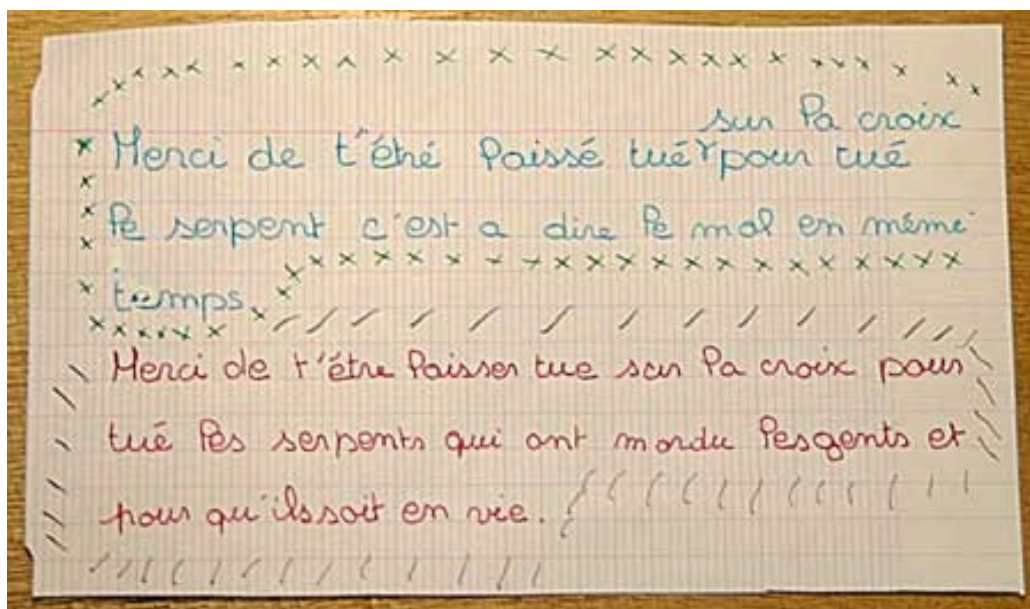 sur la croix
Merci de t'étré laissé tué pour tué
le serpent c'est a dire le mal en même
temps.
Merci de t'étre laisser tue sur la croix pour
tué les serpents qui ont mordu lesgents et
pour qu'ils soit en vie.